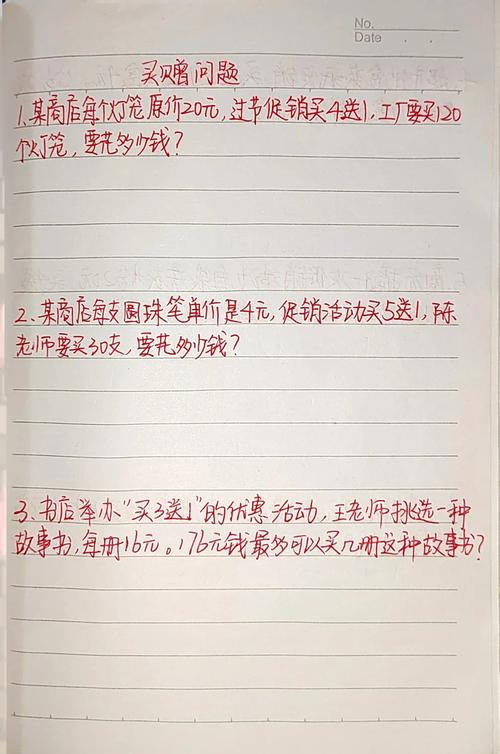 No.
Date
买赠问题
1.某商店每个灯笼原价20元,过节促销买4送1,工厂要买120
个灯笼,要花多少钱?
2、某商店每支圆珠笔单价是4元,促销活动买5送1,陈
老师要买30支,要花多少钱?
3、书店举办"买3送1"的优惠活动,王老师挑选一种
故事书,每册16元。176元钱最多可以买几册这种故事书?